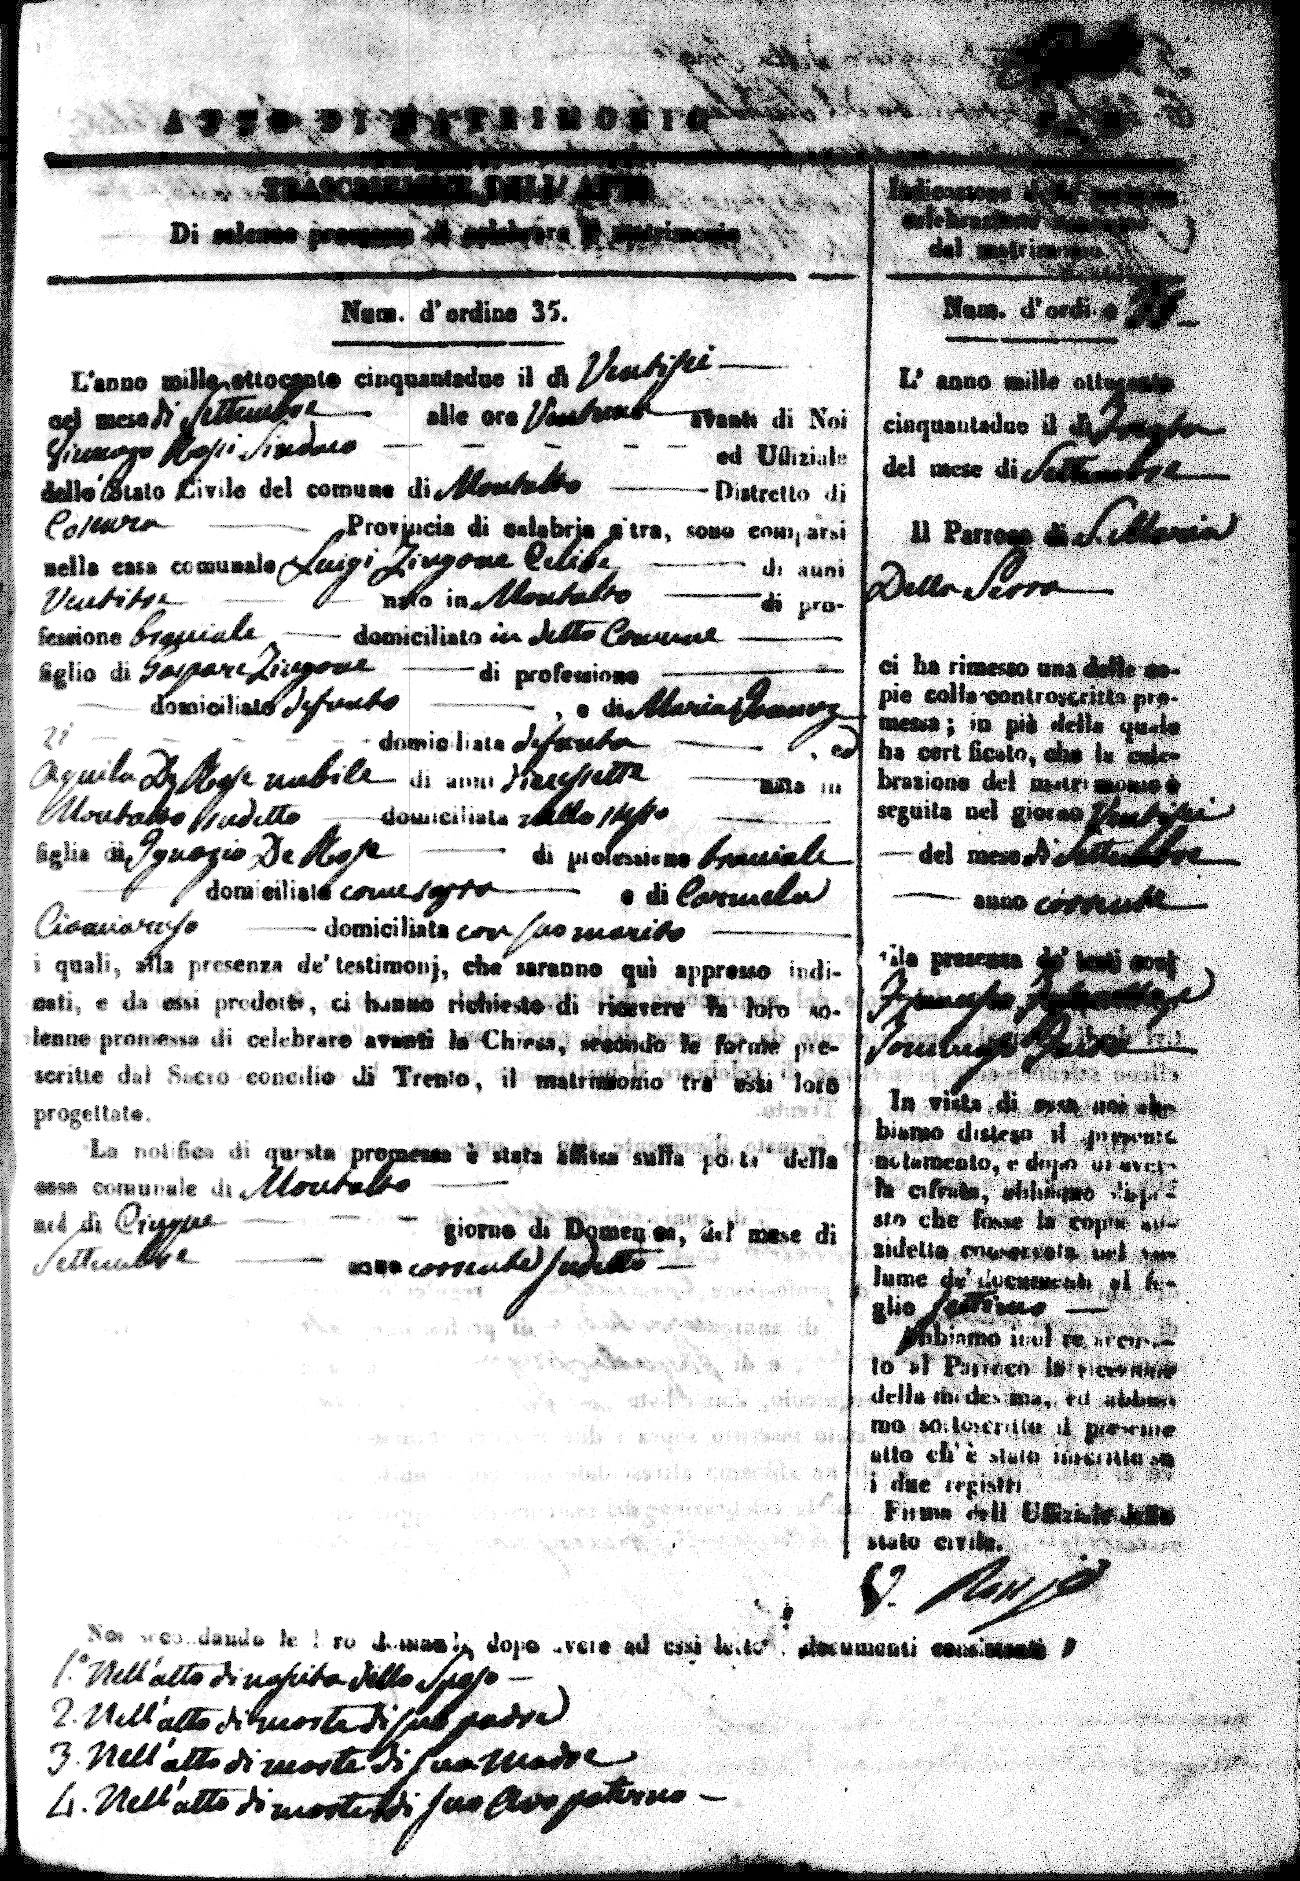 ATTO DI MATRIMONIO
TRASCRIZIONE DELL' ATTO
Di solenne promessa di celebrare il matrimonio
Num. d'ordine 35.
L'anno mille ottocento cinquantadue il dì Ventisei
nel mese di Settembre alle ore avanti di Noi
Rossi Sindaco ed Uffiziale
dello Stato Civile del comune di Montalto Distretto di
Cosenza Provincia di calabria citra, sono comparsi
nella casa comunale Luigi Zingone Celibe di anni
Ventitre nato in Montalto di pro-
fessione braciale domiciliato in detto Comune
figlio di Gaspare Zingone di professione
domiciliato defunto , e di Maria
domiciliata defunta , ed
Aquila De Rose nubile di anni diecissette nata in
Montalto sudetto domiciliata nello stesso
figlia di Ignazio De Rose di professione braciale
domiciliato come sopra e di Carmela
domiciliata con suo marito
i quali, alla presenza de' testimonj, che saranno quì appresso indi-
cati, e da essi prodotti, ci hanno richiesto di ricevere la loro so-
lenne promessa di celebrare avanti la Chiesa, secondo le forme pre-
scritte dal Sacro concilio di Trento, il matrimonio tra essi loro
progettato.
La notifica di questa promessa è stata affissa sulla porta della
casa comunale di Montalto
nel dì Cinque giorno di Domenica, del mese di
Settembre anno corrente sudetto
Noi secondando le loro domande, dopo avere ad essi letto i documenti consistenti
1.° Nell'atto di nascita dello Sposo
2. Nell'atto di morte di suo padre
3. Nell'atto di morte di sua Madre
4. Nell'atto di morte di suo Avo paterno
Indicazione della
celebrazione
del matrimonio.
Num. d'ordine 35
L' anno mille ottocento
cinquantadue il dì
del mese di Settembre
Il Parroco di S. Maria
Della Serra
ci ha rimesso una delle co-
pie colla controscritta pro-
messa; in piè della quale
ha certificato, che la cele-
brazione del matrimonio è
seguita nel giorno Ventisei
del mese di Settembre
anno corrente
alla presenza de' testimonj
Francesco
Domenico
In vista di essa noi ab-
biamo disteso il presente
notamento, e dopo di aver-
la cifrata, abbiamo dispo-
sto che fosse la copia su-
sidetta conservata nel vo-
lume de' documenti al fo-
glio settimo
Abbiamo inoltre accusa-
to al Parroco la ricevuta
della medesima, ed abbia-
mo sottoscritto il presente
atto ch'è stato inscritto su
i due registri
Firma dell Uffiziale dello
stato civile.